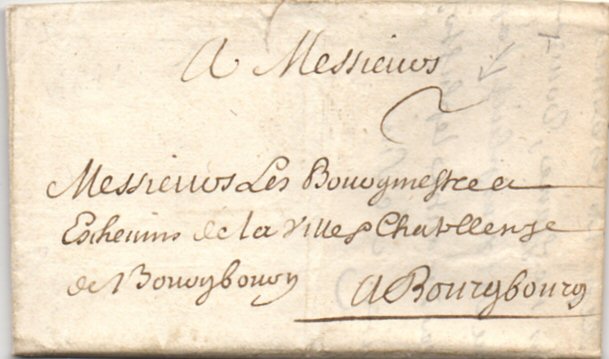 A Messieurs
Messieurs Les Bourgmestre et
Eschevins de la Ville & Chatellenie
de Bourgbourg A Bourgbourg